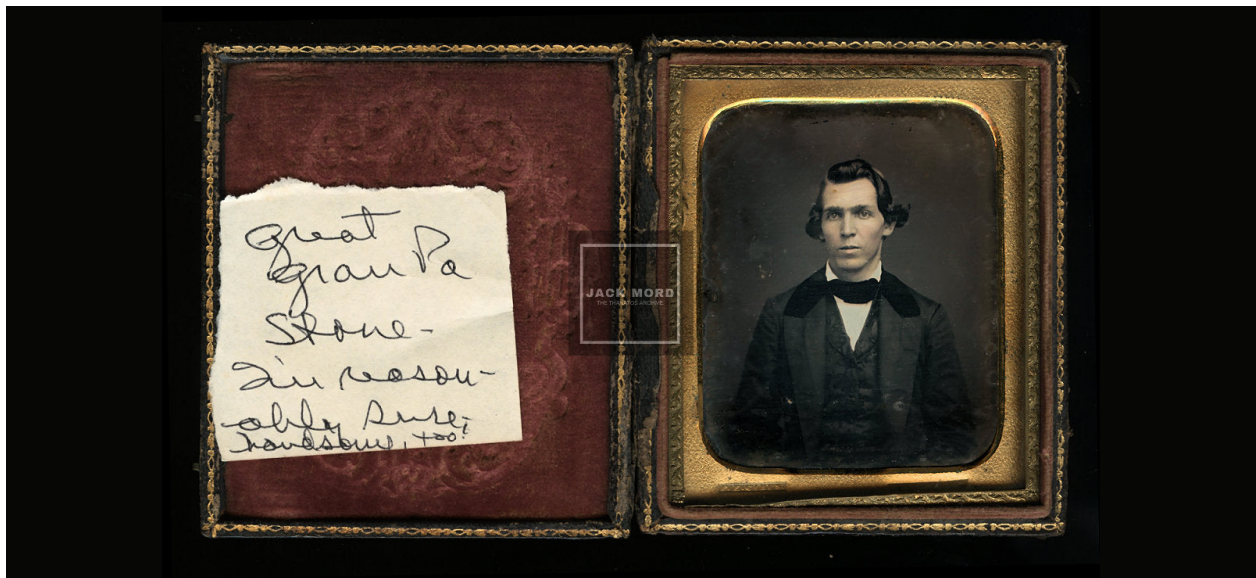 great
gran Pa
Stone-
I'm reason-
ably sure;
handsome, too!
JACK MORD
THE THANATOS ARCHIVE